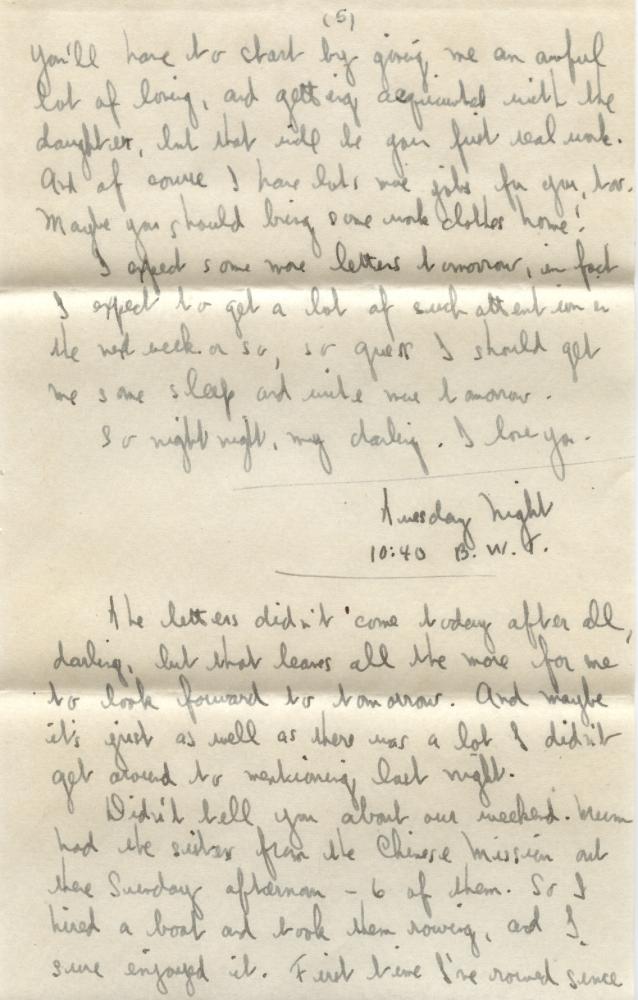 (5)
You'll have to start by giving me an awful
lot of loving, and getting acquainted with the
daughter, but that will be your first real work.
And of course I have lots more jobs for you, too.
Maybe you should bring some work clothes home!
I expect some more letters tomorrow, in fact
I expect to get a lot of such attention in
the next week or so, so guess I should get
me some sleep and write more tomorrow.
So night night, my darling. I love you.
Tuesday Night
10:40 B.W.T.
The letters didn't come today after all,
darling, but that leaves all the more for me
to look forward to tomorrow. And maybe
it's just as well as there was a lot I didn't
get around to mentioning last night.
Didn't tell you about our weekend. Mum
had the sisters from the Chinese Mission out
there Sunday afternoon - 6 of them. So I
hired a boat and took them rowing, and I
sure enjoyed it. First time I've rowed since